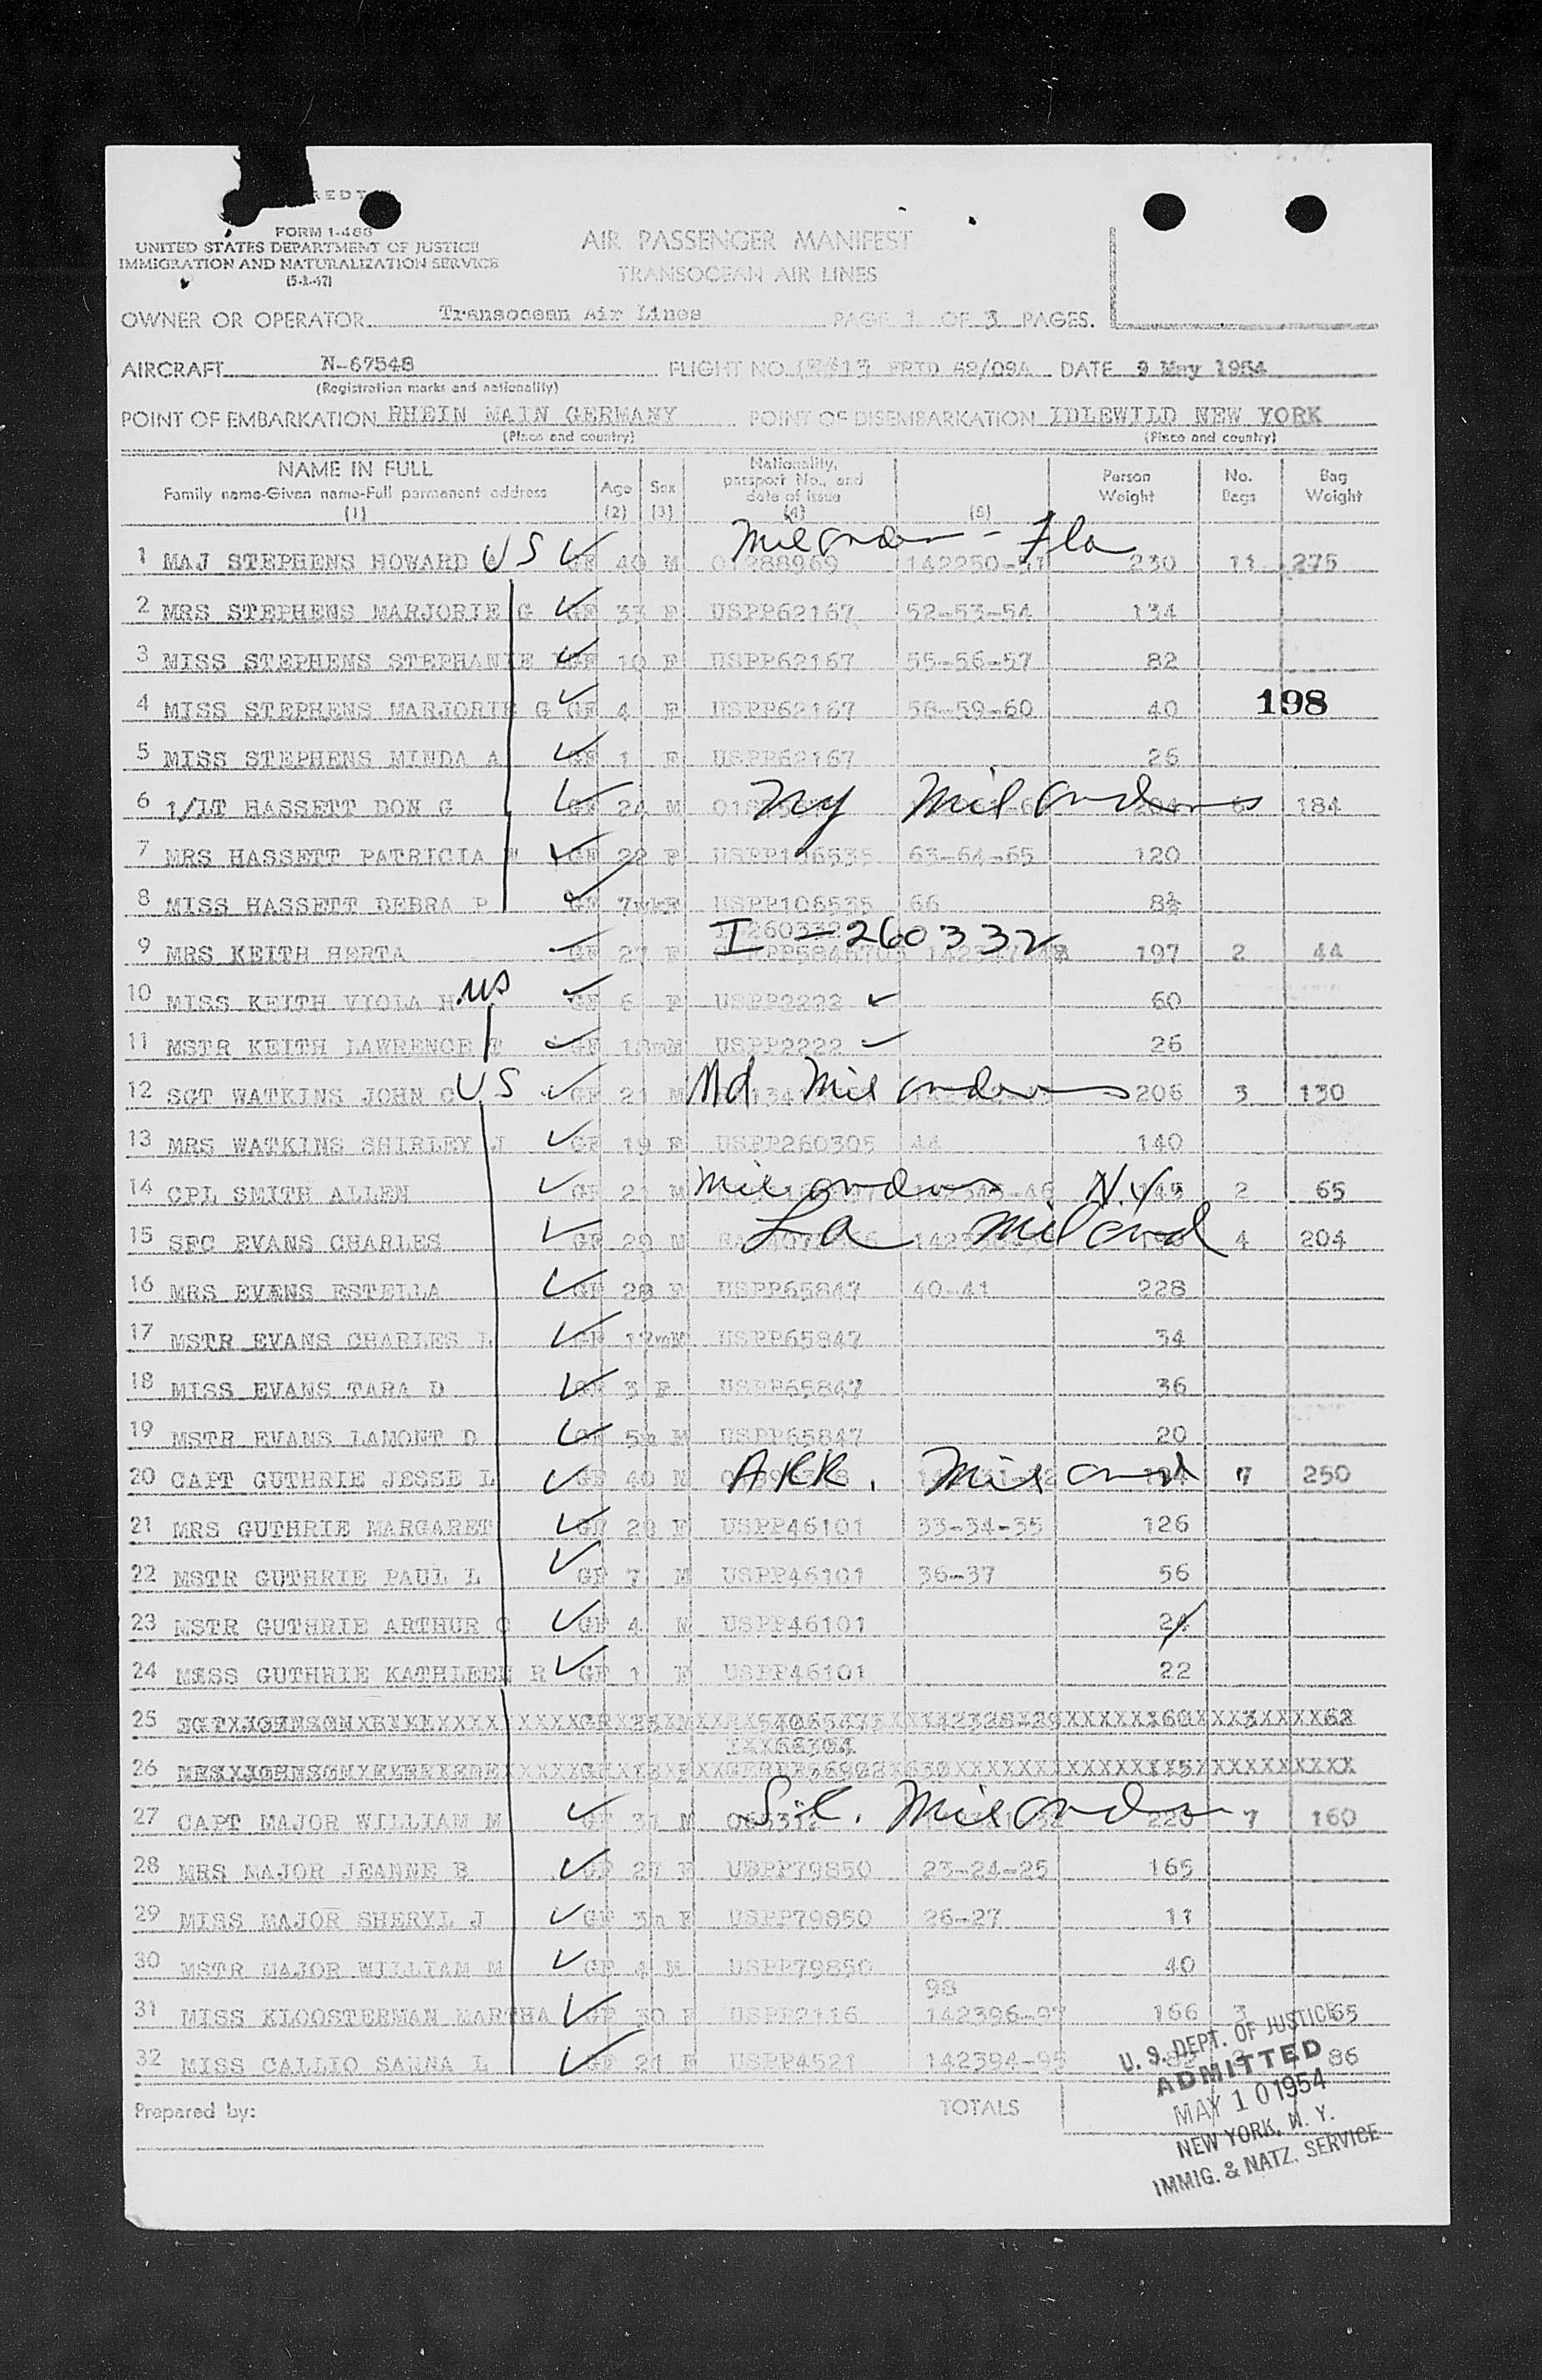 FORM 1-466
UNITED STATES DEPARTMENT OF JUSTICE
IMMIGRATION AND NATURALIZATION SERVICE
(5-1-47)
AIR PASSENGER MANIFEST
TRANSOCEAN AIR LINES
OWNER OR OPERATOR Transocean Air Lines PAGE 1 OF 3 PAGES.
AIRCRAFT N-67548 FLIGHT NO. FRTD 62/09A DATE 9 May 1954
(Registration marks and nationality)
POINT OF EMBARKATION RHEIN MAIN GERMANY POINT OF DISEMBARKATION IDLEWILD NEW YORK
(Place and country) (Place and country)
NAME IN FULL Age Sex Nationality, passport No., and date of issue Person Weight No. Bags Bag Weight
Family name-Given name-Full permanent address
(1) (2) (3) (4) (5)
Mil orders - Fla
1 MAJ STEPHENS HOWARD US ✓ GF 40 M 01288969 142250-51 230 11 275
2 MRS STEPHENS MARJORIE G ✓ GF 33 F USPP62167 52-53-54 134
3 MISS STEPHENS STEPHANIE ✓ GF 10 F USPP62167 55-56-57 82
4 MISS STEPHENS MARJORIE G ✓ GF 4 F USPP62167 58-59-60 40
198
5 MISS STEPHENS MINDA A ✓ GF 1 F USPP62167 26
6 1/LT HASSETT DON G ✓ GF 24 M NY Mil orders 184
7 MRS HASSETT PATRICIA ✓ GF 22 F USPP106535 63-64-65 120
8 MISS HASSETT DEBRA P ✓ GF 7wkF USPP106535 66 8½
9 MRS KEITH HERTA ✓ GF 27 F I-260332 197 2 44
10 MISS KEITH VIOLA H US ✓ GF 6 F USPP2222 ✓ 60
11 MSTR KEITH LAWRENCE ✓ GF M USPP2222 ✓ 26
12 SGT WATKINS JOHN C US ✓ GF 21 M Md Mil orders 206 3 130
13 MRS WATKINS SHIRLEY J ✓ GF 19 F USPP260305 44 140
14 CPL SMITH ALLEN ✓ GF 21 M Mil orders N.Y 145 2 65
15 SFC EVANS CHARLES ✓ GF 29 M La Mil ord 4 204
16 MRS EVANS ESTELLA ✓ GF 28 F USPP65847 40-41 228
17 MSTR EVANS CHARLES L ✓ GF 17mM USPP65847 34
18 MISS EVANS TARA D ✓ GF 3 F USPP65847 36
19 MSTR EVANS LAMONT D ✓ GF 5m M USPP65847 20
20 CAPT GUTHRIE JESSE L ✓ GF 40 M ARK. Mil ord 7 250
21 MRS GUTHRIE MARGARET ✓ GF 29 F USPP46101 33-34-35 126
22 MSTR GUTHRIE PAUL L ✓ GF 7 M USPP46101 36-37 56
23 MSTR GUTHRIE ARTHUR C ✓ GF 4 M USPP46101 24
24 MISS GUTHRIE KATHLEEN R ✓ GF 1 F USPP46101 22
25
26
27 CAPT MAJOR WILLIAM M ✓ GF 31 M Mil orders 220 7 160
28 MRS MAJOR JEANNE B ✓ GF 27 F USPP79850 23-24-25 165
29 MISS MAJOR SHERYL J ✓ GF 3m F USPP79850 26-27 11
30 MSTR MAJOR WILLIAM M ✓ GF 4 M USPP79850 40
98
31 MISS KLOOSTERMAN MARTHA ✓ GF 30 F USPP2116 142396-97 166 3 65
32 MISS CALLIO SANNA L ✓ GF 21 F USPP4521 142394-95 86
Prepared by: TOTALS
U. S. DEPT. OF JUSTICE
ADMITTED
MAY 10 1954
NEW YORK, N. Y.
IMMIG. & NATZ. SERVICE